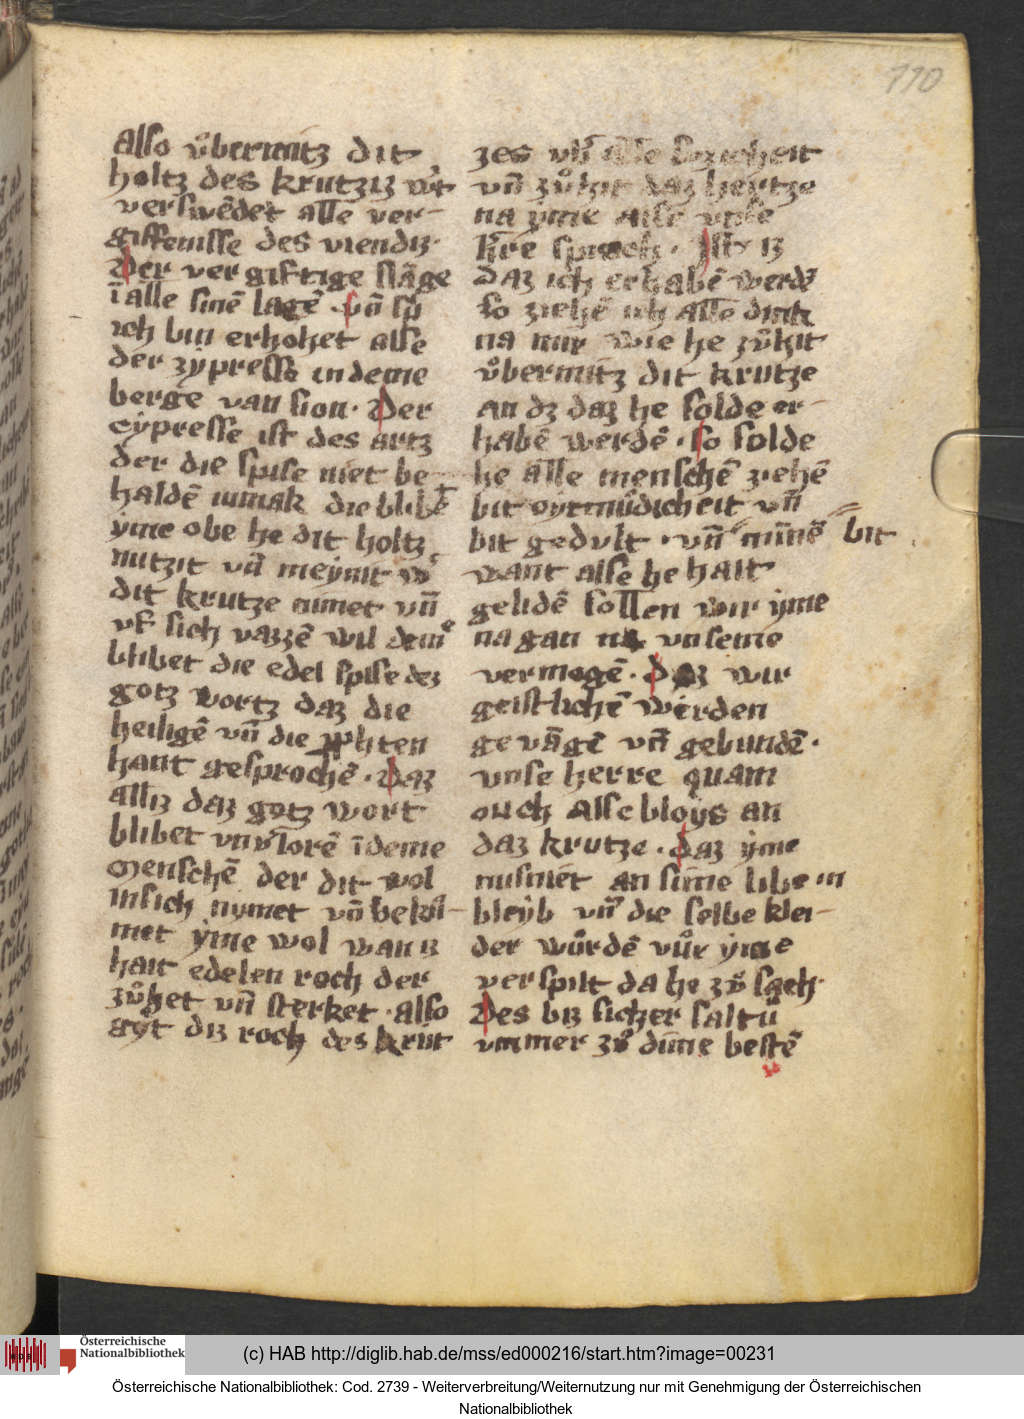 110
Also vͦbermitz dit
holtz des krutziz wͦt
verswēdet alle ver-
giffenisse des viendiz.
Der vergiftige slāge
ī alle sinē lagē . vn̄ sp̄
ich bin erhohet alse
der zẏpresse in deme
berge van sion . Der
cẏpresse ist des artz
der die spise niet be-
haldē inmak die blibē
ẏme obe he dit holtz
nutzit vn̄ meẏnit wͨ
dit krutze nimet vn̄
vf sich vazzē wil deme
blibet die edel spise dez
gotz wortz daz die
heiligē vn̄ die ꝓphten
hant gesprochē . Daz
alliz daz gotz wort
blibet vnv̓lorē ī deme
menschē der dit wol
in sich nymet vn̄ bekūi-
met ẏme wol wan iz
hait edelen roch der
zvͦhet vn̄ sterket . also
gẏt diz roch des krut
zes vn̄ alle sv̓zicheit
vn̄ zvͦhit daz hertze
na ẏme alse vnse
h̓re sprach . Ist iz
daz ich erhabē werdē
so ziehē ich alle dink
na mir wie he zvͦhit
vͦbermitz dit krutze
an dz daz he solde er-
habē werdē . so solde
he alle menschē ziehē
bit oẏtmūdicheit vn̄
bit gedvlt . vn̄ minnē bit
want alse he hait
gelidē sollen wir ẏme
na gan na vnseme
vermogē . daz wir
geistlichē werden
gevāgē vn̄ gebundē .
vnse herre quam
ouch alse bloẏs an
daz krutze . daz ẏme
nusniet an sime libe in
bleẏb vn̄ die selbe klei-
der wͦrdē vuͦr ẏme
verspilt da he zvͦ sach .
Des biz sichzer saltu
vmmer zvͦ dime bestē
(c) HAB http://diglib.hab.de/mss/ed000216/start.htm?image=00231
Österreichische
Nationalbibliothek
Österreichische Nationalbibliothek: Cod. 2739 - Weiterverbreitung/Weiternutzung nur mit Genehmigung der Österreichischen
Nationalbibliothek